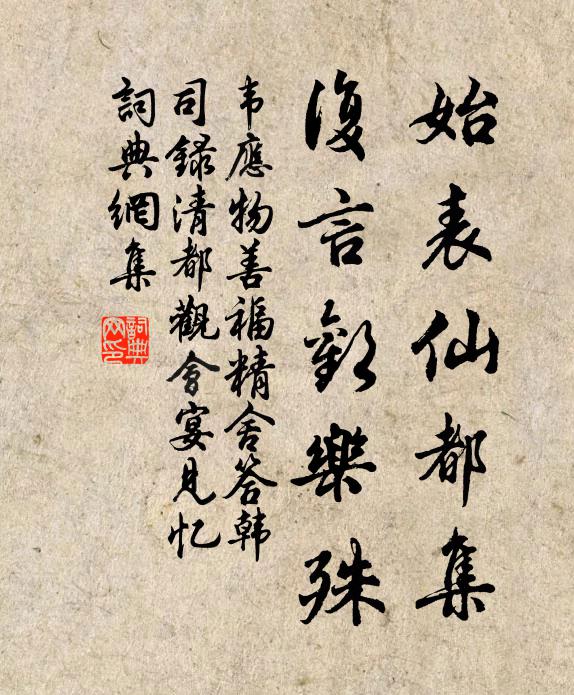 始表仙都集
復言歡樂殊
韦應物善福精舍答韩
司録清都觀會宴見忆
詞典網集
詞典
网印